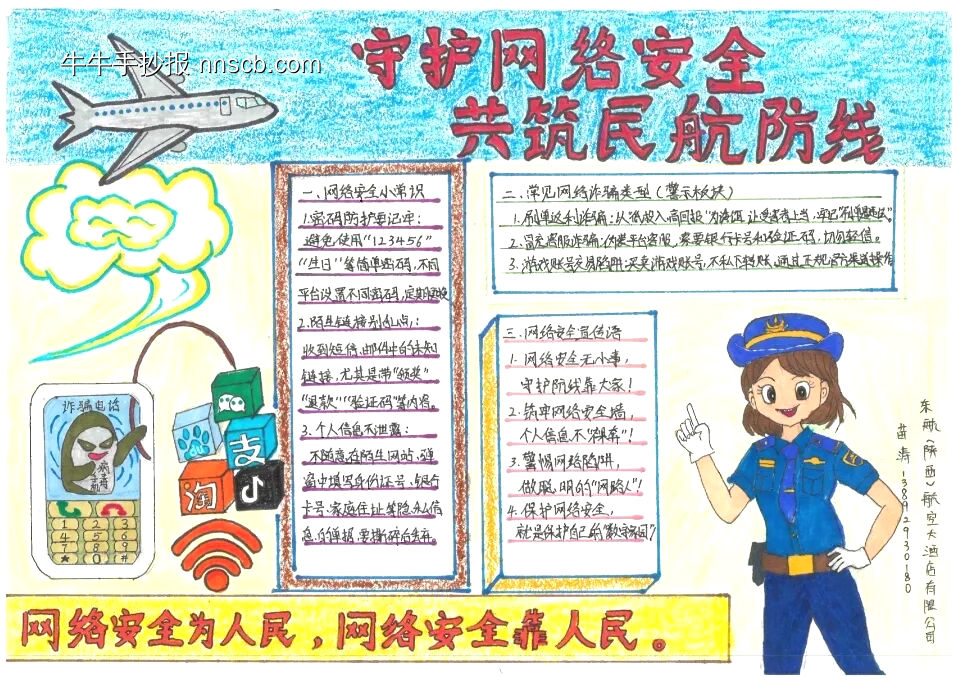 牛牛手抄报 nnscb.com
守护网络安全
共筑民航防线
一、网络安全小常识
1.密码防护要记牢:
避免使用"123456"
"生日"等简单密码,不同
平台设置不同密码,定期更换
2.陌生链接别乱点:
收到短信、邮件中的未知
链接,尤其是带"领奖"
"退款""验证码"等内容。
3.个人信息不泄露:
不随意在陌生网站、弹
窗中填写身份证号、银行
卡号、家庭住址等隐私信
息的单据,要撕碎后丢弃。
二、常见网络诈骗类型(警示板块)
1.刷单返利诈骗:以"低投入高回报"为诱饵,让受害者上当,牢记
2.冒充客服诈骗:伪装平台客服,索要银行卡号和验证码,切勿轻信。
3.游戏账号交易陷阱:买卖游戏账号,不私下转账,通过正规官方渠道操作
三、网络安全宣传语
1.网络安全无小事,
守护防线靠大家!
2.筑牢网络安全墙,
个人信息不"裸奔"!
3.警惕网络陷阱,
做聪明的"网路人"!
4.保护网络安全,
就是保护自己的"数字家园"?
诈骗电话
1 2 3
4 5 6
7 8 9
* 0 #
支
淘
东航(陕西)航空大酒店有限公司
苗涛 13892930180
网络安全为人民,网络安全靠人民。